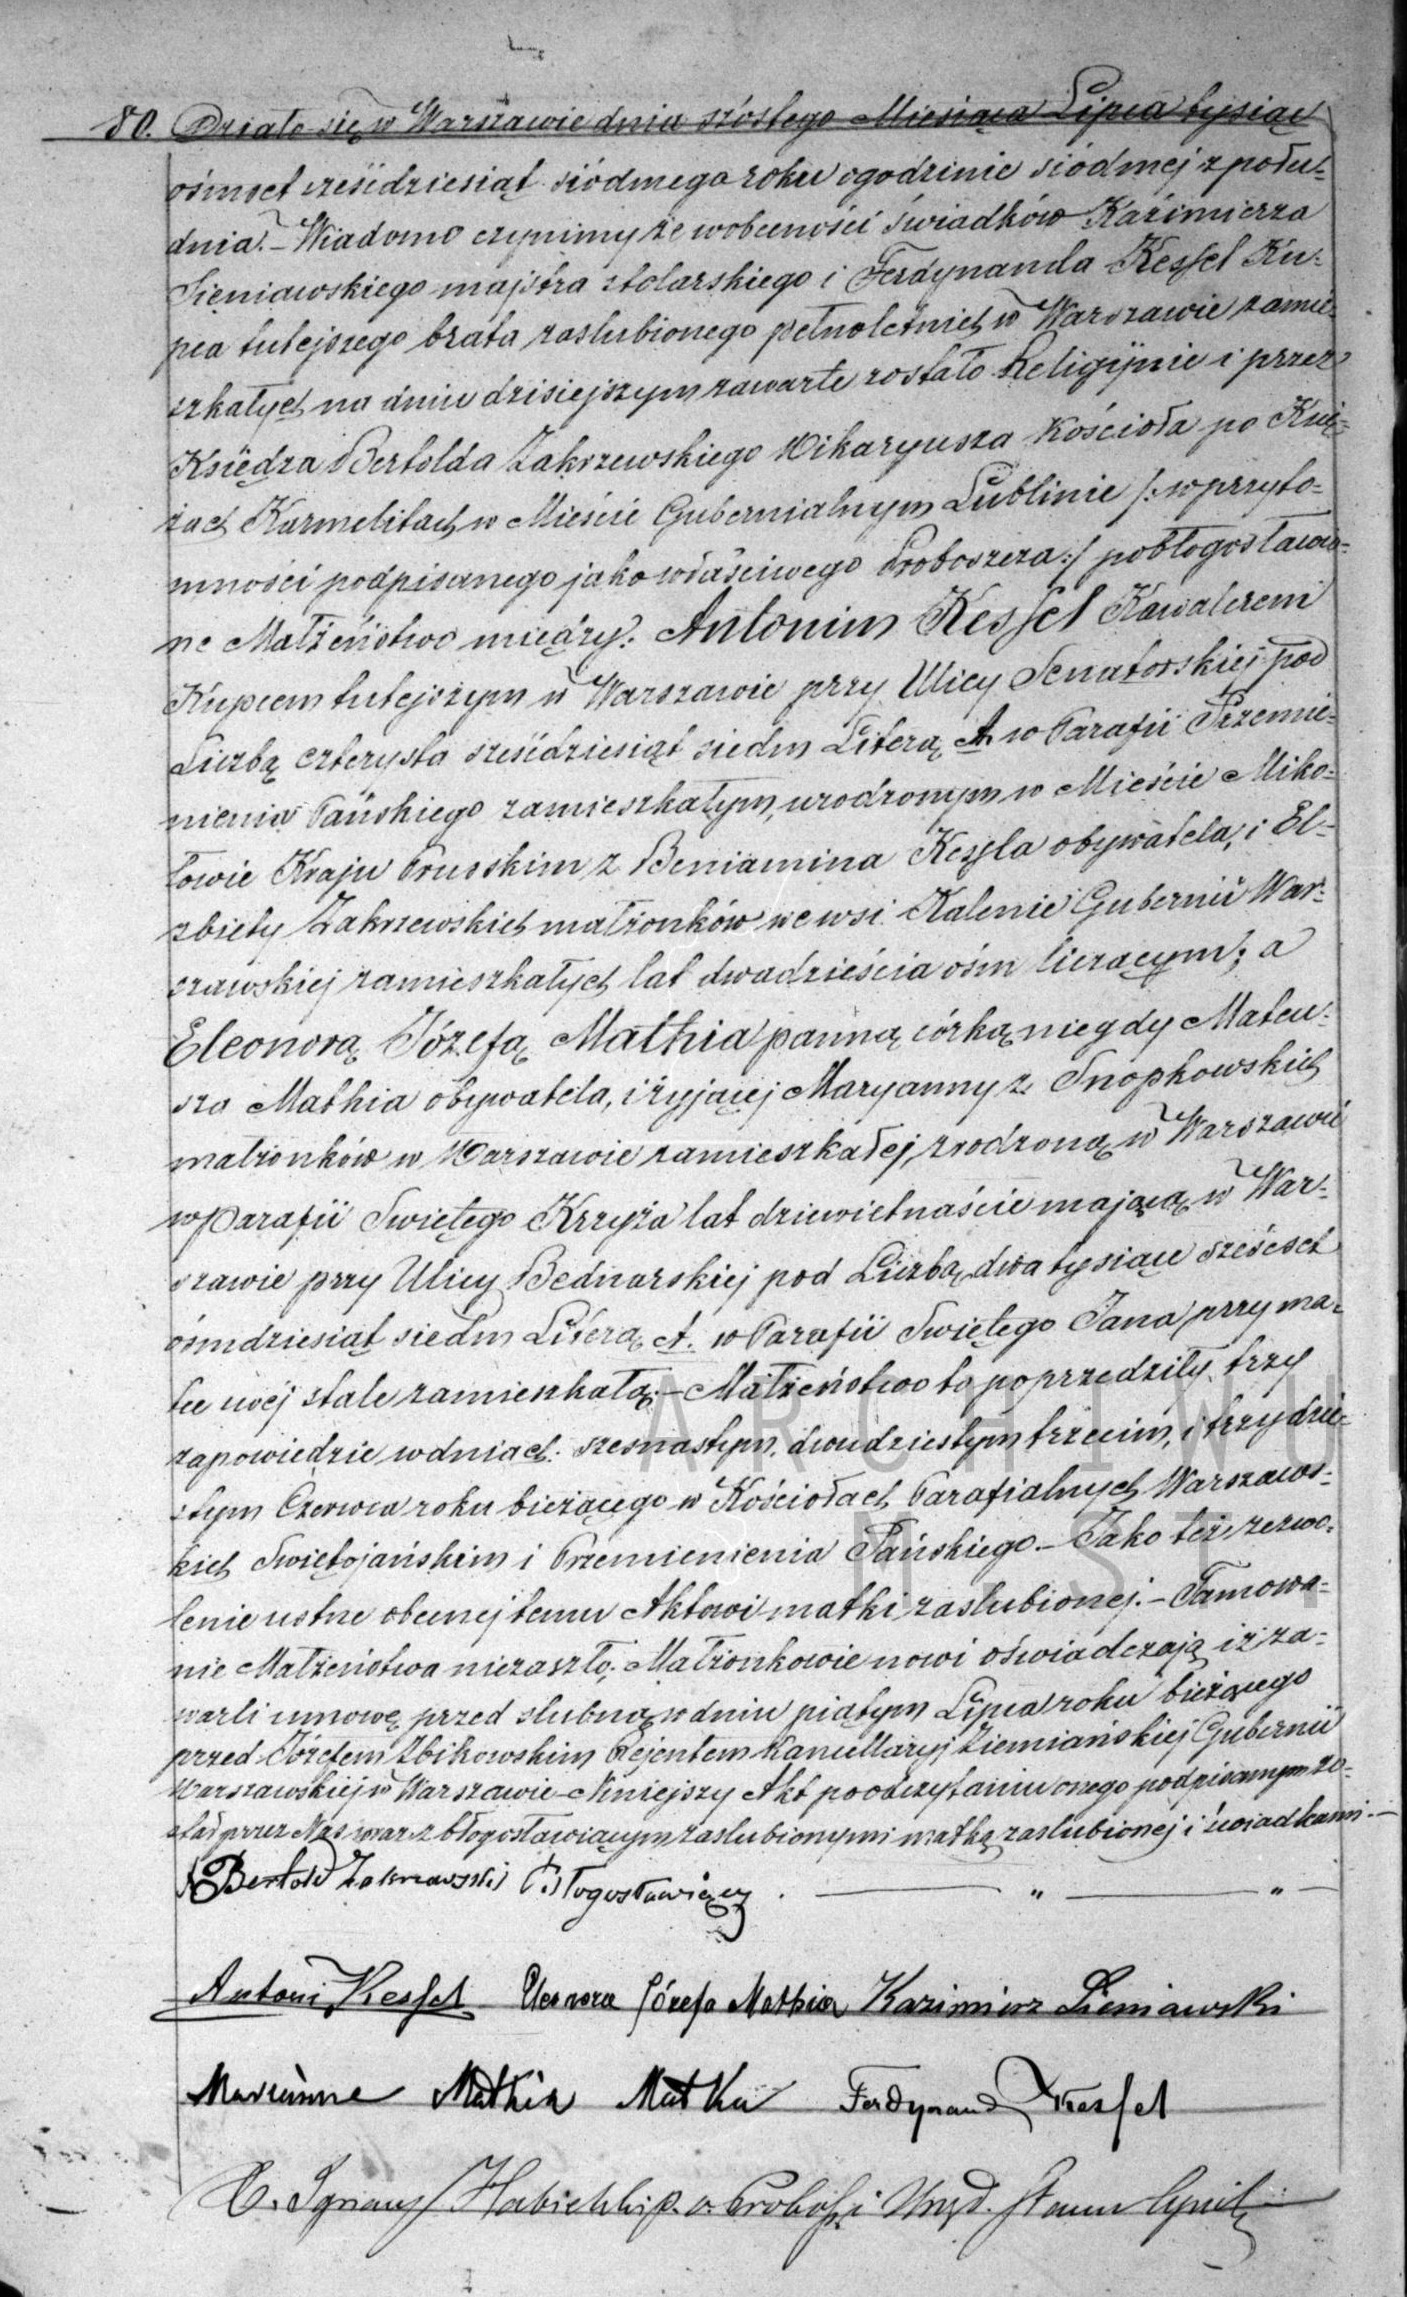 80. Działo się w Warszawie dnia szóstego Miesiąca Lipca tysiąc
ośmset sześćdziesiąt siódmego roku o godzinie siódmej z połu-
dnia. – Wiadomo czynimy że w obecności świadków Kaźimierza
Sieniawskiego majstra stolarskiego i Ferdynanda Kessel Ku-
pca tutejszego brata zaslubionego pełnoletnich w Warszawie zamie-
szkałych na dniu dzisiejszym zawarte zostało Religijnie i przez
Księdza Bertolda Zakrzewskiego Wikaryusza Kościoła po Xię-
żach Karmelitach w Mieście Gubernialnym Lublinie /: w przyto-
mności podpisanego jako właściwego Proboszcza :/ pobłogosławio-
ne Małżeństwo między: Antonim Kessel Kawalerem
Kupcem tutejszym w Warszawie przy Ulicy Senatorskiej pod
Liczbą czterysta sześćdziesiąt siedm Literą A. w Parafii Przemie-
nienia Pańskiego zamieszkałym, urodzonym w Mieście Miko-
łowie Kraju Prusskim z Beniamina Kessla obywatela, i El-
zbiety Zakrzewskich małżonków we wsi Kalenie Gubernii War-
szawskiej zamieszkałych lat dwadzieścia ośm liczącym; a
Eleonorą Józefą Mathia panną córką niegdy Mateu-
sza Mathia obywatela, i żyjącej Maryanny z Snopkowskich
małżonków w Warszawie zamieszkałej, zrodzoną w Warszawie
w Parafii Swiętego Krzyża lat dziewietnaście mającą w War-
szawie przy Ulicy Bednarskiej pod Liczbą dwa tysiące sześćset
ośmdziesiąt siedm Literą A. w Parafii Swiętego Jana przy ma-
tce swéj stale zamieszkałą. – Małżeństwo to poprzedziły trzy
zapowiedzie w dniach: szesnastym, dwudziestym trzecim, i trzydzie-
stym Czerwca roku bieżącego w Kościołach Parafialnych Warszaws-
kich Swiętojańskim i Przemienienia Pańskiego. – Jako też zezwo-
lenie ustne obecnej temu Aktowi matki zaslubionej. – Tamowa-
nie Małżeństwa niezaszło. Małżonkowie nowi oświadczają iż za-
warli umowę przed slubną w dniu piątym Lipca roku bieżącego
przed Józefem Zbikowskim Rejentem Kancellaryj Ziemiańskiej Gubernii
Warszawskiej w Warszawie – Niniejszy Akt po odczytaniu onego podpisanym zo-
stał przez Nas wraz z błogosławiącym zaslubionymi matką zaslubionej i świadkami. –
X Bertold Zakrzewski Błogosławiący
Antoni Kessel Eleonora Józefa Mathia Kazimierz Sieniawski
Marianne Mathia Matka Ferdynand Kessel
X. Ignacy p. o. Probosz. i Urzęd. Stanu Cywil.
ARCHIWUM
M. ST.